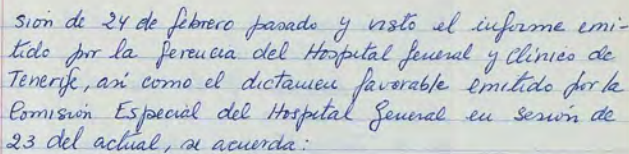 sión de 24 de febrero pasado y visto el informe emi-
tido por la Gerencia del Hospital General y Clínico de
Tenerife, así como el dictamen favorable emitido por la
Comisión Especial del Hospital General en sesión de
23 del actual, se acuerda: